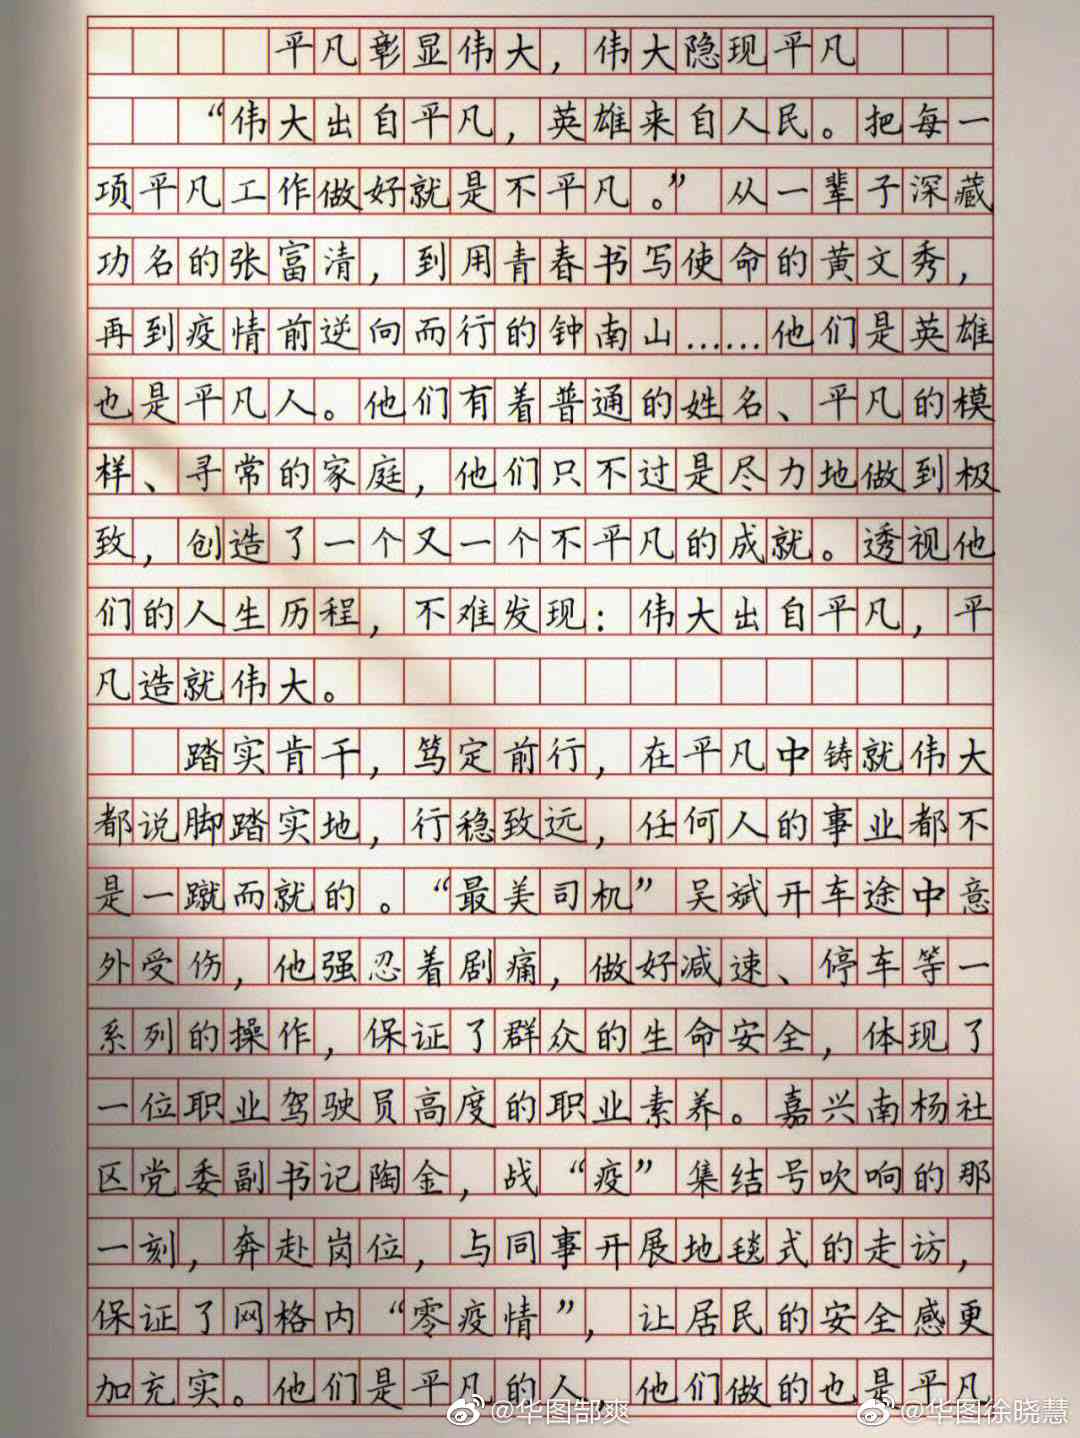 平凡彰显伟大，伟大隐现平凡
“伟大出自平凡，英雄来自人民。把每一
项平凡工作做好就是不平凡。”从一辈子深藏
功名的张富清，到用青春书写使命的黄文秀，
再到疫情前逆向而行的钟南山……他们是英雄
也是平凡人。他们有着普通的姓名、平凡的模
样、寻常的家庭，他们只不过是尽力地做到极
致，创造了一个又一个不平凡的成就。透视他
们的人生历程，不难发现：伟大出自平凡，平
凡造就伟大。
踏实肯干，笃定前行，在平凡中铸就伟大
都说脚踏实地，行稳致远，任何人的事业都不
是一蹴而就的。“最美司机”吴斌开车途中意
外受伤，他强忍着剧痛，做好减速、停车等一
系列的操作，保证了群众的生命安全，体现了
一位职业驾驶员高度的职业素养。嘉兴南杨社
区党委副书记陶金，战“疫”集结号吹响的那
一刻，奔赴岗位，与同事开展地毯式的走访，
保证了网格内“零疫情”，让居民的安全感更
加充实。他们是平凡的人，他们做的也是平凡
@华图郜爽
@华图徐晓慧